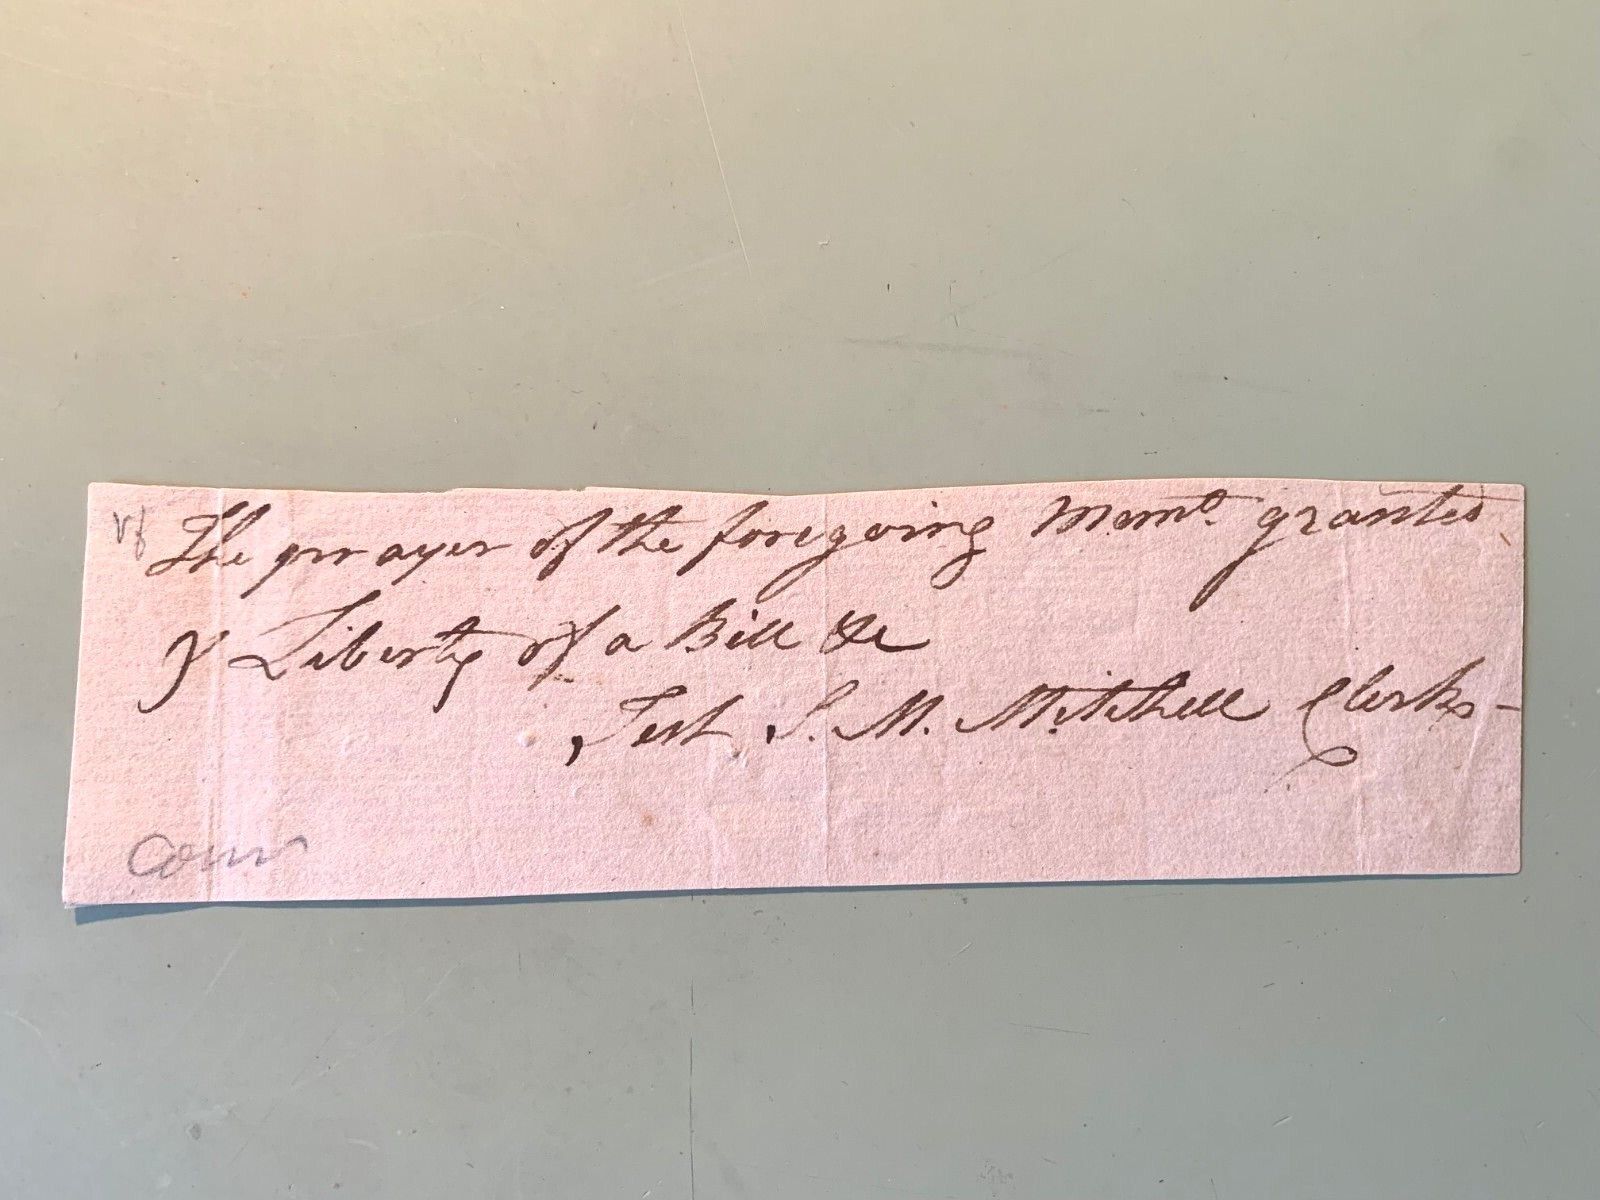 The prayer of the foregoing Memo. granted
& Liberty of a Bill &c
Test S. M. Mitchell Clerk -
Conn